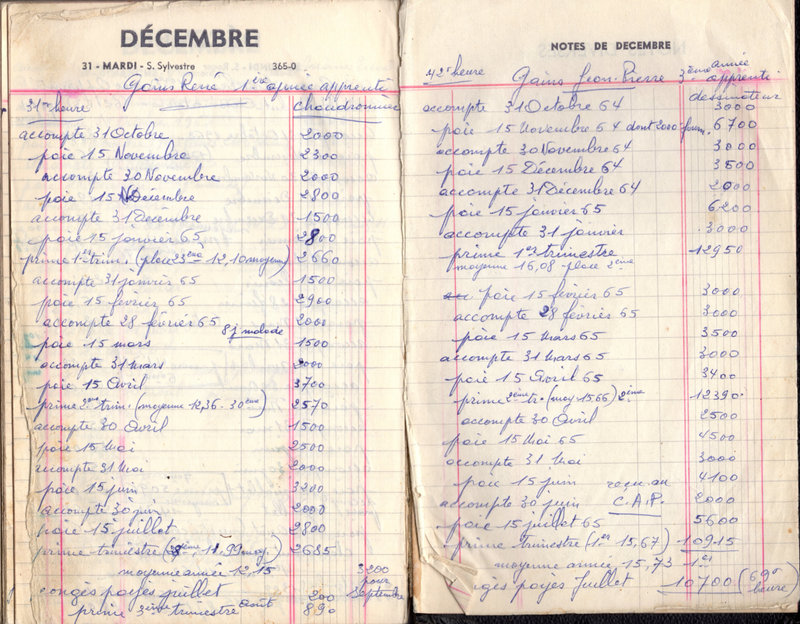 DÉCEMBRE
31 - MARDI - S. Sylvestre 365-0
Gains René 1ère année apprenti
31 heure chaudronnier
accompte 31 Octobre 2000
paie 15 Novembre 2300
accompte 30 Novembre 2000
paie 15 Décembre 2800
accompte 31 Décembre 1500
paie 15 janvier 65 2800
prime 1er trim. (place 23ème 12,10 moyenn) 2660
accompte 31 janvier 65 1500
paie 15 fevrier 65 2900
accompte 28 février 65 2000
8 j malade
paie 15 mars 1500
accompte 31 Mars 2000
paie 15 Avril 3700
prime 2ème trim. (moyenne 12,36. 30ème) 2570
accompte 30 Avril 1500
paie 15 Mai 2500
accompte 31 Mai 2000
paie 15 juin 3200
accompte 30 juin 2000
paie 15 juillet 2800
prime trimestre ( 11,99 moy.) 2685
moyenne année 12,15 3200
pour
Septembre
congés payés juillet 200
prime 3ème trimestre août 890
NOTES DE DECEMBRE
42 heure Gains Jean-Pierre 3ème année
apprenti
dessinateur
accompte 31 Octobre 64 3000
paie 15 Novembre 64 dont 2000 fourn. 6700
accompte 30 Novembre 64 3000
paie 15 Décembre 64 3500
accompte 31 Décembre 64 2000
paie 15 janvier 65 6200
accompte 31 janvier 3000
prime 1er trimestre 12950
moyenne 16,08 place 2ème
paie 15 février 65 3000
accompte 28 février 65 3000
paie 15 Mars 65 3500
accompte 31 Mars 65 3000
paie 15 Avril 65 3400
prime 2ème tr. (moy 15 66) 2ème 12390
accompte 30 Avril 2500
paie 15 Mai 65 4500
accompte 31 Mai 3000
paie 15 juin 4100
reçu au
accompte 30 juin C.A.P. 2000
paie 15 juillet 65 5600
prime trimestre (1er 15,67) 10915
moyenne année, 15,73 1er
congés payés Juillet 10700 (69 heure)